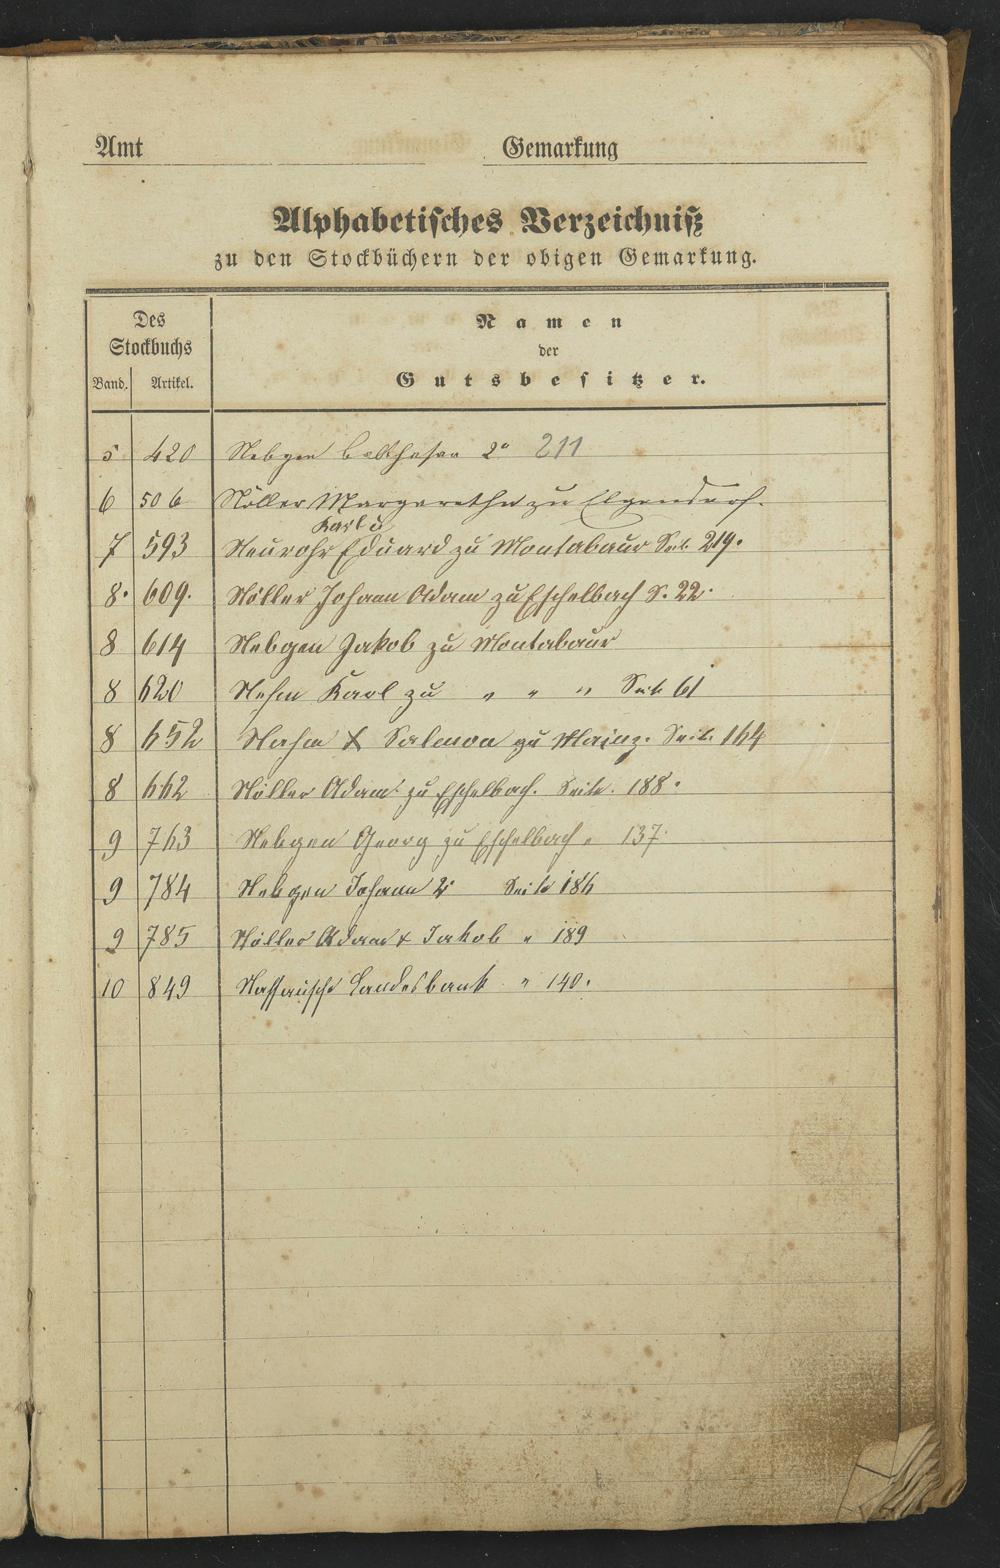 Amt Gemarkung
Alphabetisches Verzeichniß
zu den Stockbüchern der obigen Gemarkung.
Des Stockbuchs
Namen
der
Gutsbesitzer.
Band. Artikel.
5 420 Nebgen Balthasar 2r 211
6 506 Nöller Margaretha zu Elgendorf.
Karl u
7 593 Neurohr Eduard zu Montabaur Seite 219.
8. 609. Nöller Johann Adam zu Eschelbach S. 22.
8 614 Nebgen Jakob zu Montabaur
8 620 Nehm Karl zu " " " Seite 61
8 652 Nahm & Salmon zu Mainz. Seite 164
8 662 Nöller Adam zu Eschelbach. Seite. 188.
9 763 Nebgen Georg zu Eschelbach " 137.
9 784 Nebgen Johann 2r Seite 186
9 785 Nöller Adam & Jakob " 189
10 849 Nassauische Landesbank " 140.